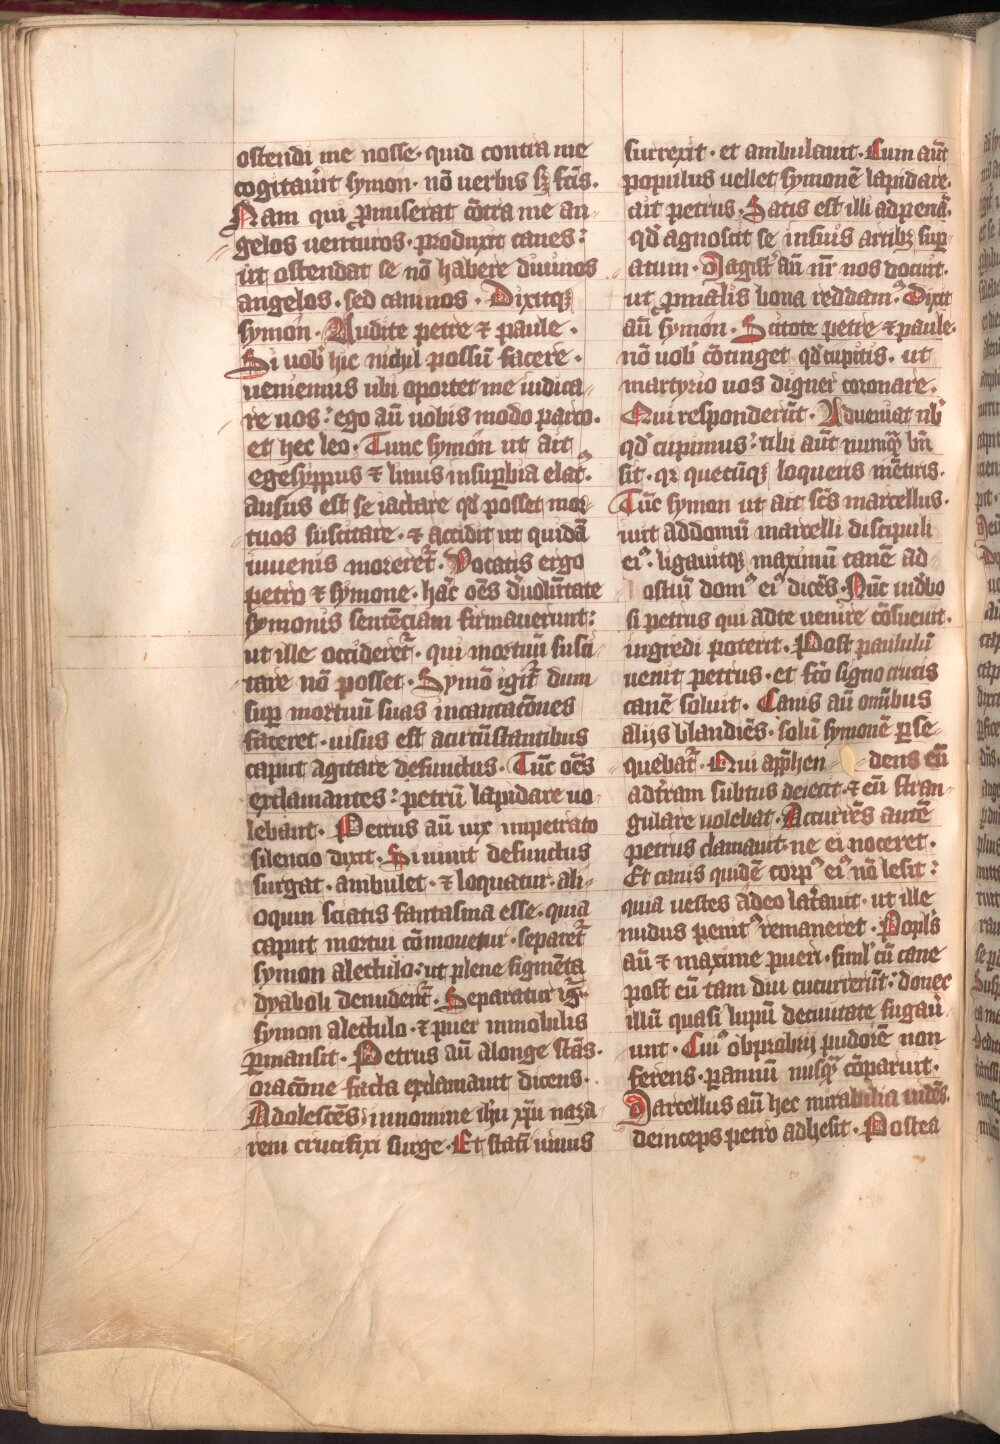 ostendi me nosse· quid contra me
cogitau̅it symon· no̅ uerbis sꝫ fc̅is·
Nam qui ꝓmiserat co̅tra me an
gelos uenturos· produxit canes:
ut ostendat se no̅ habere diuinos
angelos· sed caninos· Dixitqꝫ
symon· Audite petre ⁊ paule·
Si uob̅ hic nichil possu̅ facere·
ueniemus ubi oportet me iudica
re uos: ego au̅ uobis modo parco·
et hec leo· Tunc symon ut ait
egesyppus ⁊ linus insuꝑbia elat᷒·
ausus est se iactare qd̅ posset mor
tuos suscitare· ⁊ accidit ut quida̅
iuuenis moreret᷑· Vocatis ergo
petro ⁊ symone· ha̅c oe̅s d̅uolu̅tate
symonis sente̅ciam firmauerunt:
ut ille occideret᷑· qui mortuu̅ susci
tare no̅ posset· Symo̅ igit᷑ dum
suꝑ mortuu̅ suas incantac̅ones
faceret· uisus est acircu̅stantibus
caput agitare defunctus· Tu̅c oe̅s
exclamantes: petru̅ lapidare uo
lebant· Petrus au̅ uix impetrato
silencio dixit· Si uiuit defunctus
surgat· ambulet· ⁊ loquatur· ali
oquin sciatis fantasma esse· quia
caput mortui co̅mouetur· separet᷑
symon alectulo: ut plene figme̅ta
dyaboli denudent᷑· Separatur ig̅
symon alectulo· ⁊ puer inmobilis
ꝑmansit· Petrus au̅ alonge sta̅s·
orac̅one facta exclamauit dicens·
Adolesce̅s innomine ih̅u xp̅u naza
reni crucifixi surge· Et stati̅ uiuus
surrexit· et ambulauit· Cum au̅t
populus uellet symone̅ lapidare·
ait petrus· Satis est illi adpena̅·
qd̅ agnoscit se insuis artibꝫ suꝑ
atum· Magist᷑ au̅ nr̅ nos docuit·
ut ꝓmalis bona reddam᷒· Dixit
au̅ symon· Scitote petre ⁊ paule·
no̅ uob̅ co̅tinget qd̅ cupitis· ut
martyrio uos digner coronare·
Qui responderu̅t· Adueniat nb̅
qd̅ cupimus: tibi au̅t nunqꝫ bn̅
sit· qr quecu̅qꝫ loqueris me̅tiris·
Tu̅c symon ut ait sc̅s marcellus·
iuit addomu̅ marcelli discipuli
ei᷒· ligauitqꝫ maximu̅ cane̅ ad
ostiu̅ dom᷒ ei᷒ dice̅s· Nu̅c uid̅bo
si petrus qui adte uenire co̅sueuit·
ingredi poterit· Post paululu̅
uenit petrus· et fc̅o signo crucis
cane̅ soluit· Canis au̅ omi̅bus
alijs blandie̅s· solu̅ symone̅ ꝑse
quebat᷑· Qui app̅hen dens eu̅
adt̅ram subtus deiecit· ⁊ eu̅ stran
gulare uolebat· Accurre̅s aute̅
petrus clamauit· ne ei noceret·
Et canis quide̅ corp᷒ ei᷒ no̅ lesit:
quia uestes adeo lac̅auit· ut ille
nudus penit᷒ remaneret· Popl̅s
au̅ ⁊ maxime pueri· siml̅ cu̅ cane
post eu̅ tam diu cucurreru̅t: donec
illu̅ quasi lupu̅ deciuitate fugau̅
unt· Cui᷒ obprobrij pudore̅ non
ferens· ꝑannu̅ nusqꝫ co̅paruit·
Marcellus au̅ hec mirabilia uide̅s·
deinceps petro adhesit· Postea